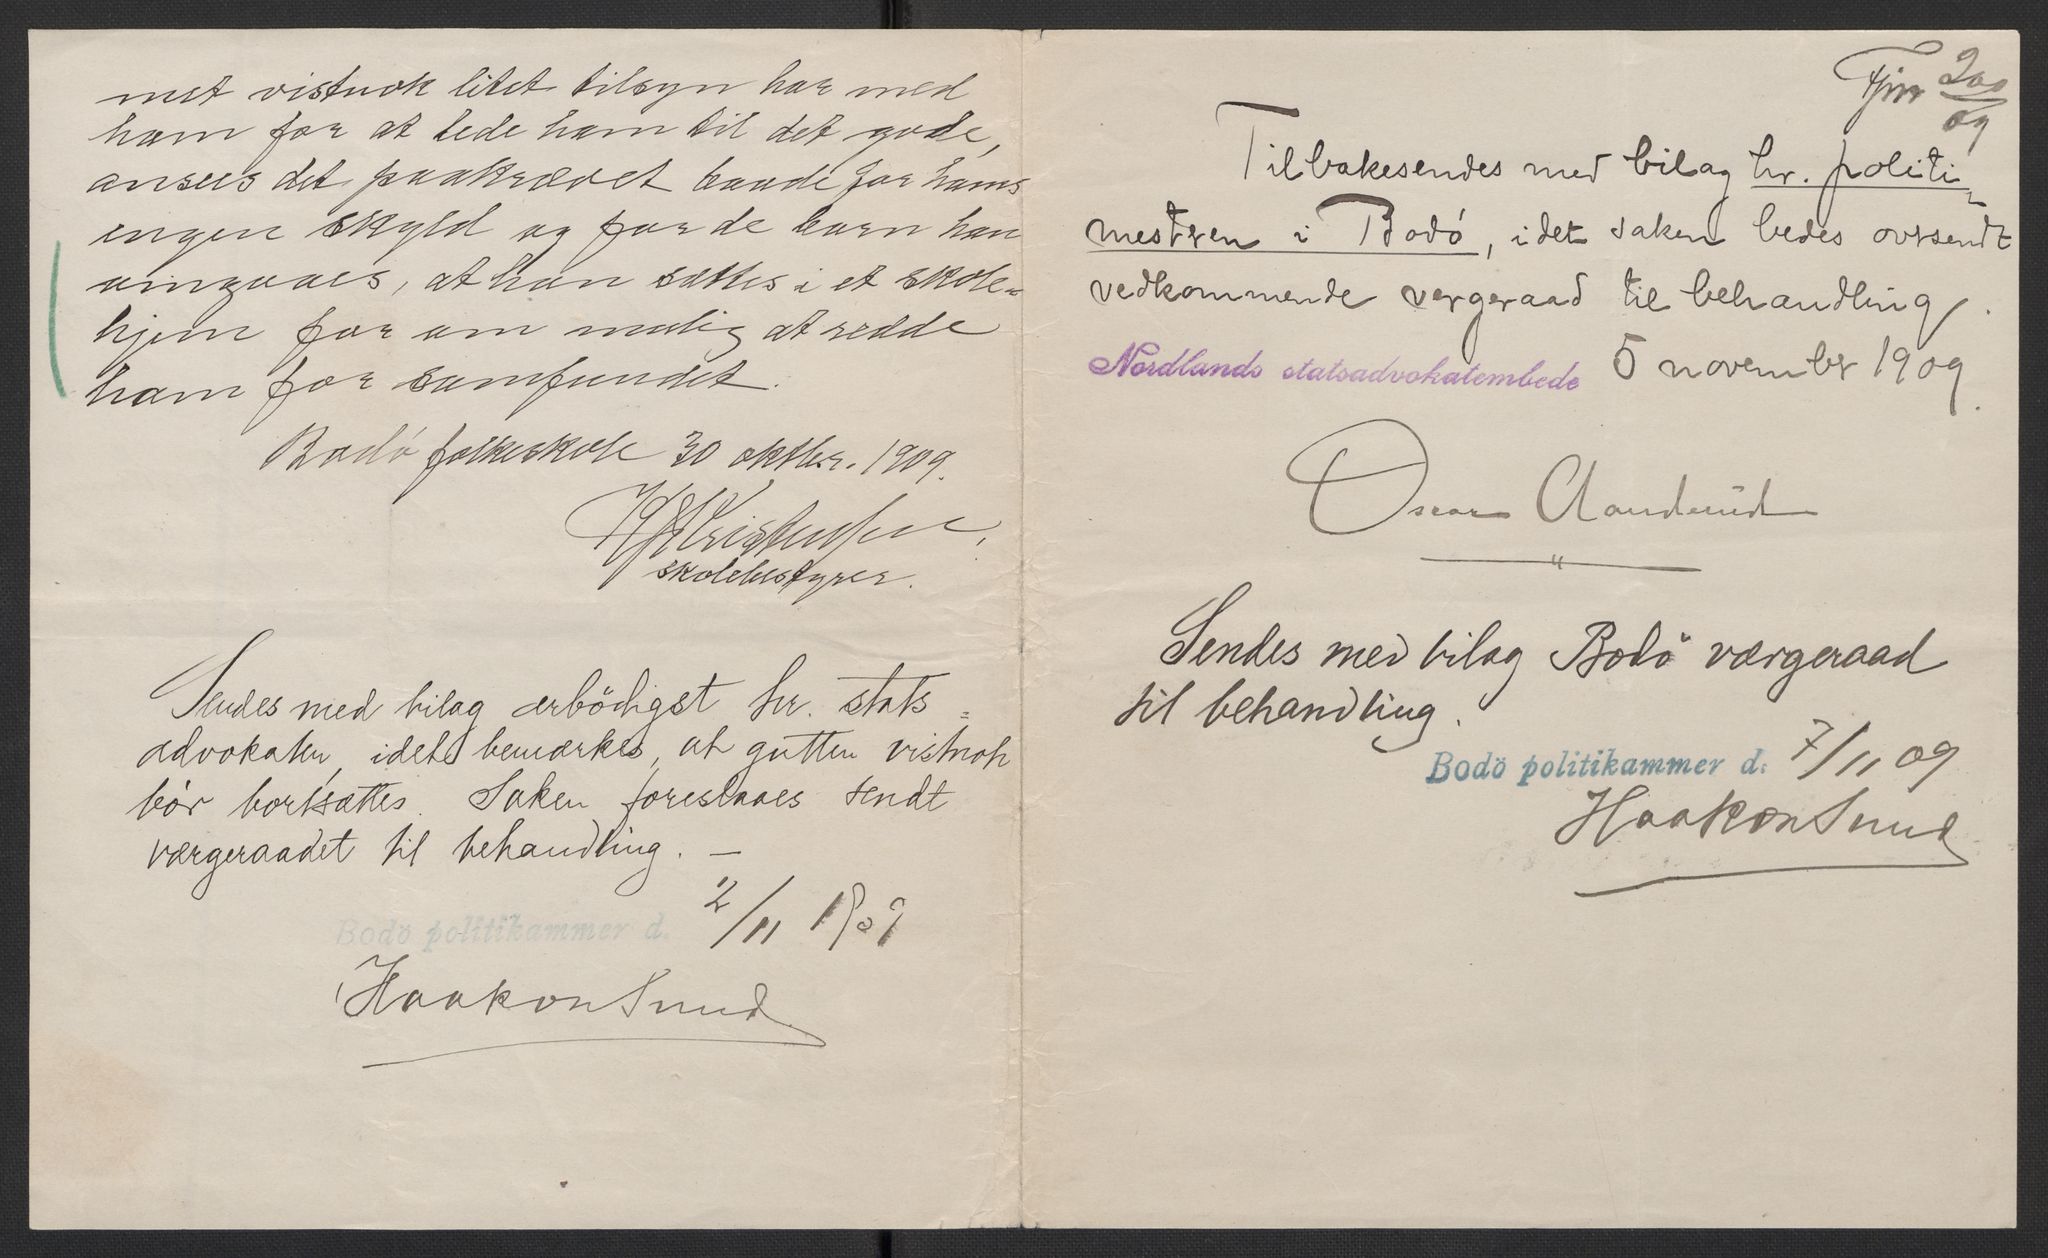 met vistnok litet tilsyn har med
ham for at lede ham til det gode,
ansees det paakrævet baade for hans
egen skyld og for de barn han
omgaaes, at han sættes i et skole-
hjem for om mulig at redde
ham for samfundet.
Bodó folkeskole 30 oktbr. 1909.
Kristensen,
skolebestyrer.
Sendes med bilag ærbödigst hr. stats=
advokaten, idet bemærkes, at gutten vistnok
bör bortsættes. Saken foreslaaes sendt
værgeraadet til behandling. —
Bodö politikammer d. 2/11 1909
Haakon Sund
200/09
Tilbakesendes med bilag hr. politi=
mestren i Bodó, idet saken bedes oversendt
vedkommende vergeraad til behandling.
Nordlands statsadvokatembede 5 november 1909.
Oscar
Sendes med bilag Bodö værgeraad
til behandling.
Bodö politikammer d. 7/11 09
Haakon Sund